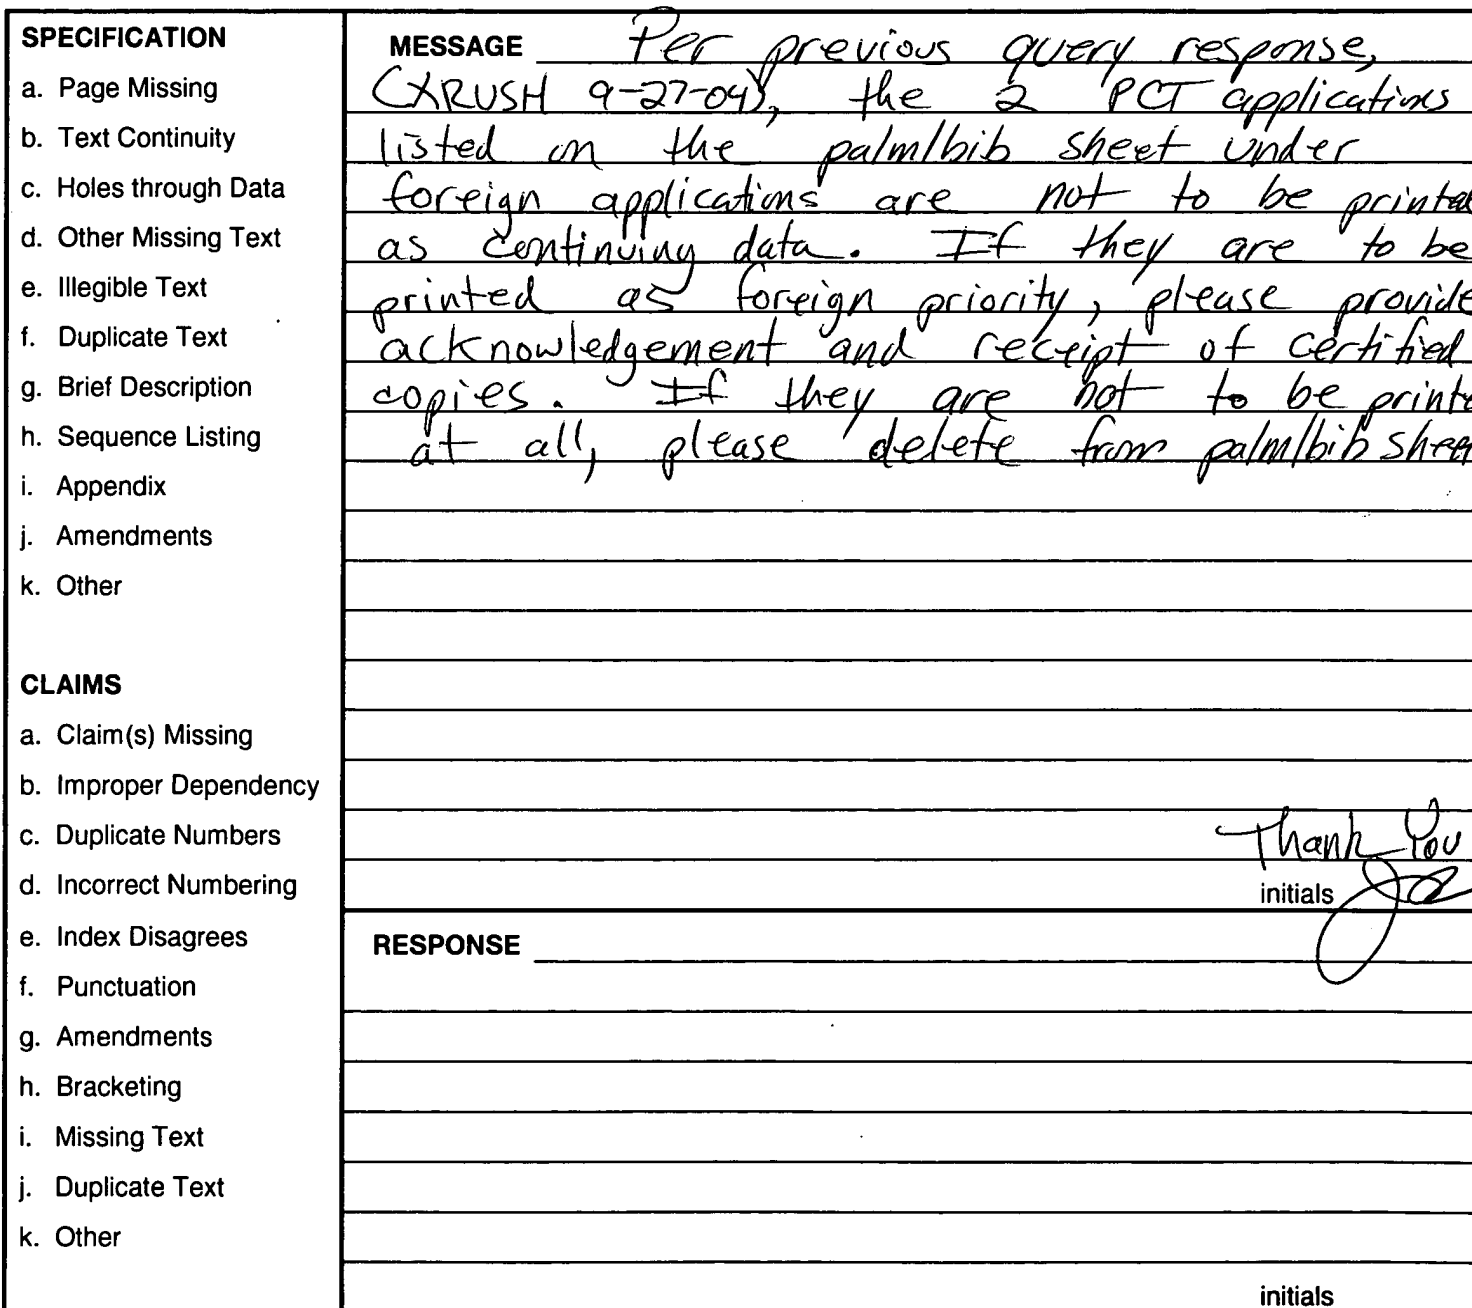 SPECIFICATION
a. Page Missing
b. Text Continuity
c. Holes through Data
d. Other Missing Text
e. Illegible Text
f. Duplicate Text
g. Brief Description
h. Sequence Listing
i. Appendix
j. Amendments
k. Other
CLAIMS
a. Claim(s) Missing
b. Improper Dependency
c. Duplicate Numbers
d. Incorrect Numbering
e. Index Disagrees
f. Punctuation
g. Amendments
h. Bracketing
i. Missing Text
j. Duplicate Text
k. Other
MESSAGE Per previous query response,
(XRUSH 9-27-04), the 2 PCT applications
listed on the palm/bib sheet under
foreign applications are not to be printed
as continuing data. If they are to be
printed as foreign priority, please provide
acknowledgement and receipt of certified
copies. If they are not to be printe
at all, please delete from palm/bib sheet
Thank You
initials
RESPONSE
initials